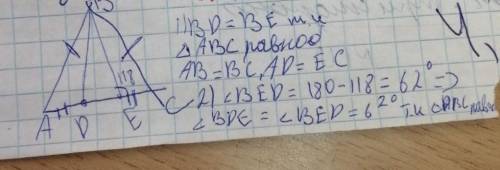 B
118
A D E C
1) BD = BE т.к
△ABC равноб
AB = BC, AD = EC
2) ∠BED = 180 - 118 = 62° =>
∠BDE = ∠BED = 62° т.к △ABC равн
Ч,